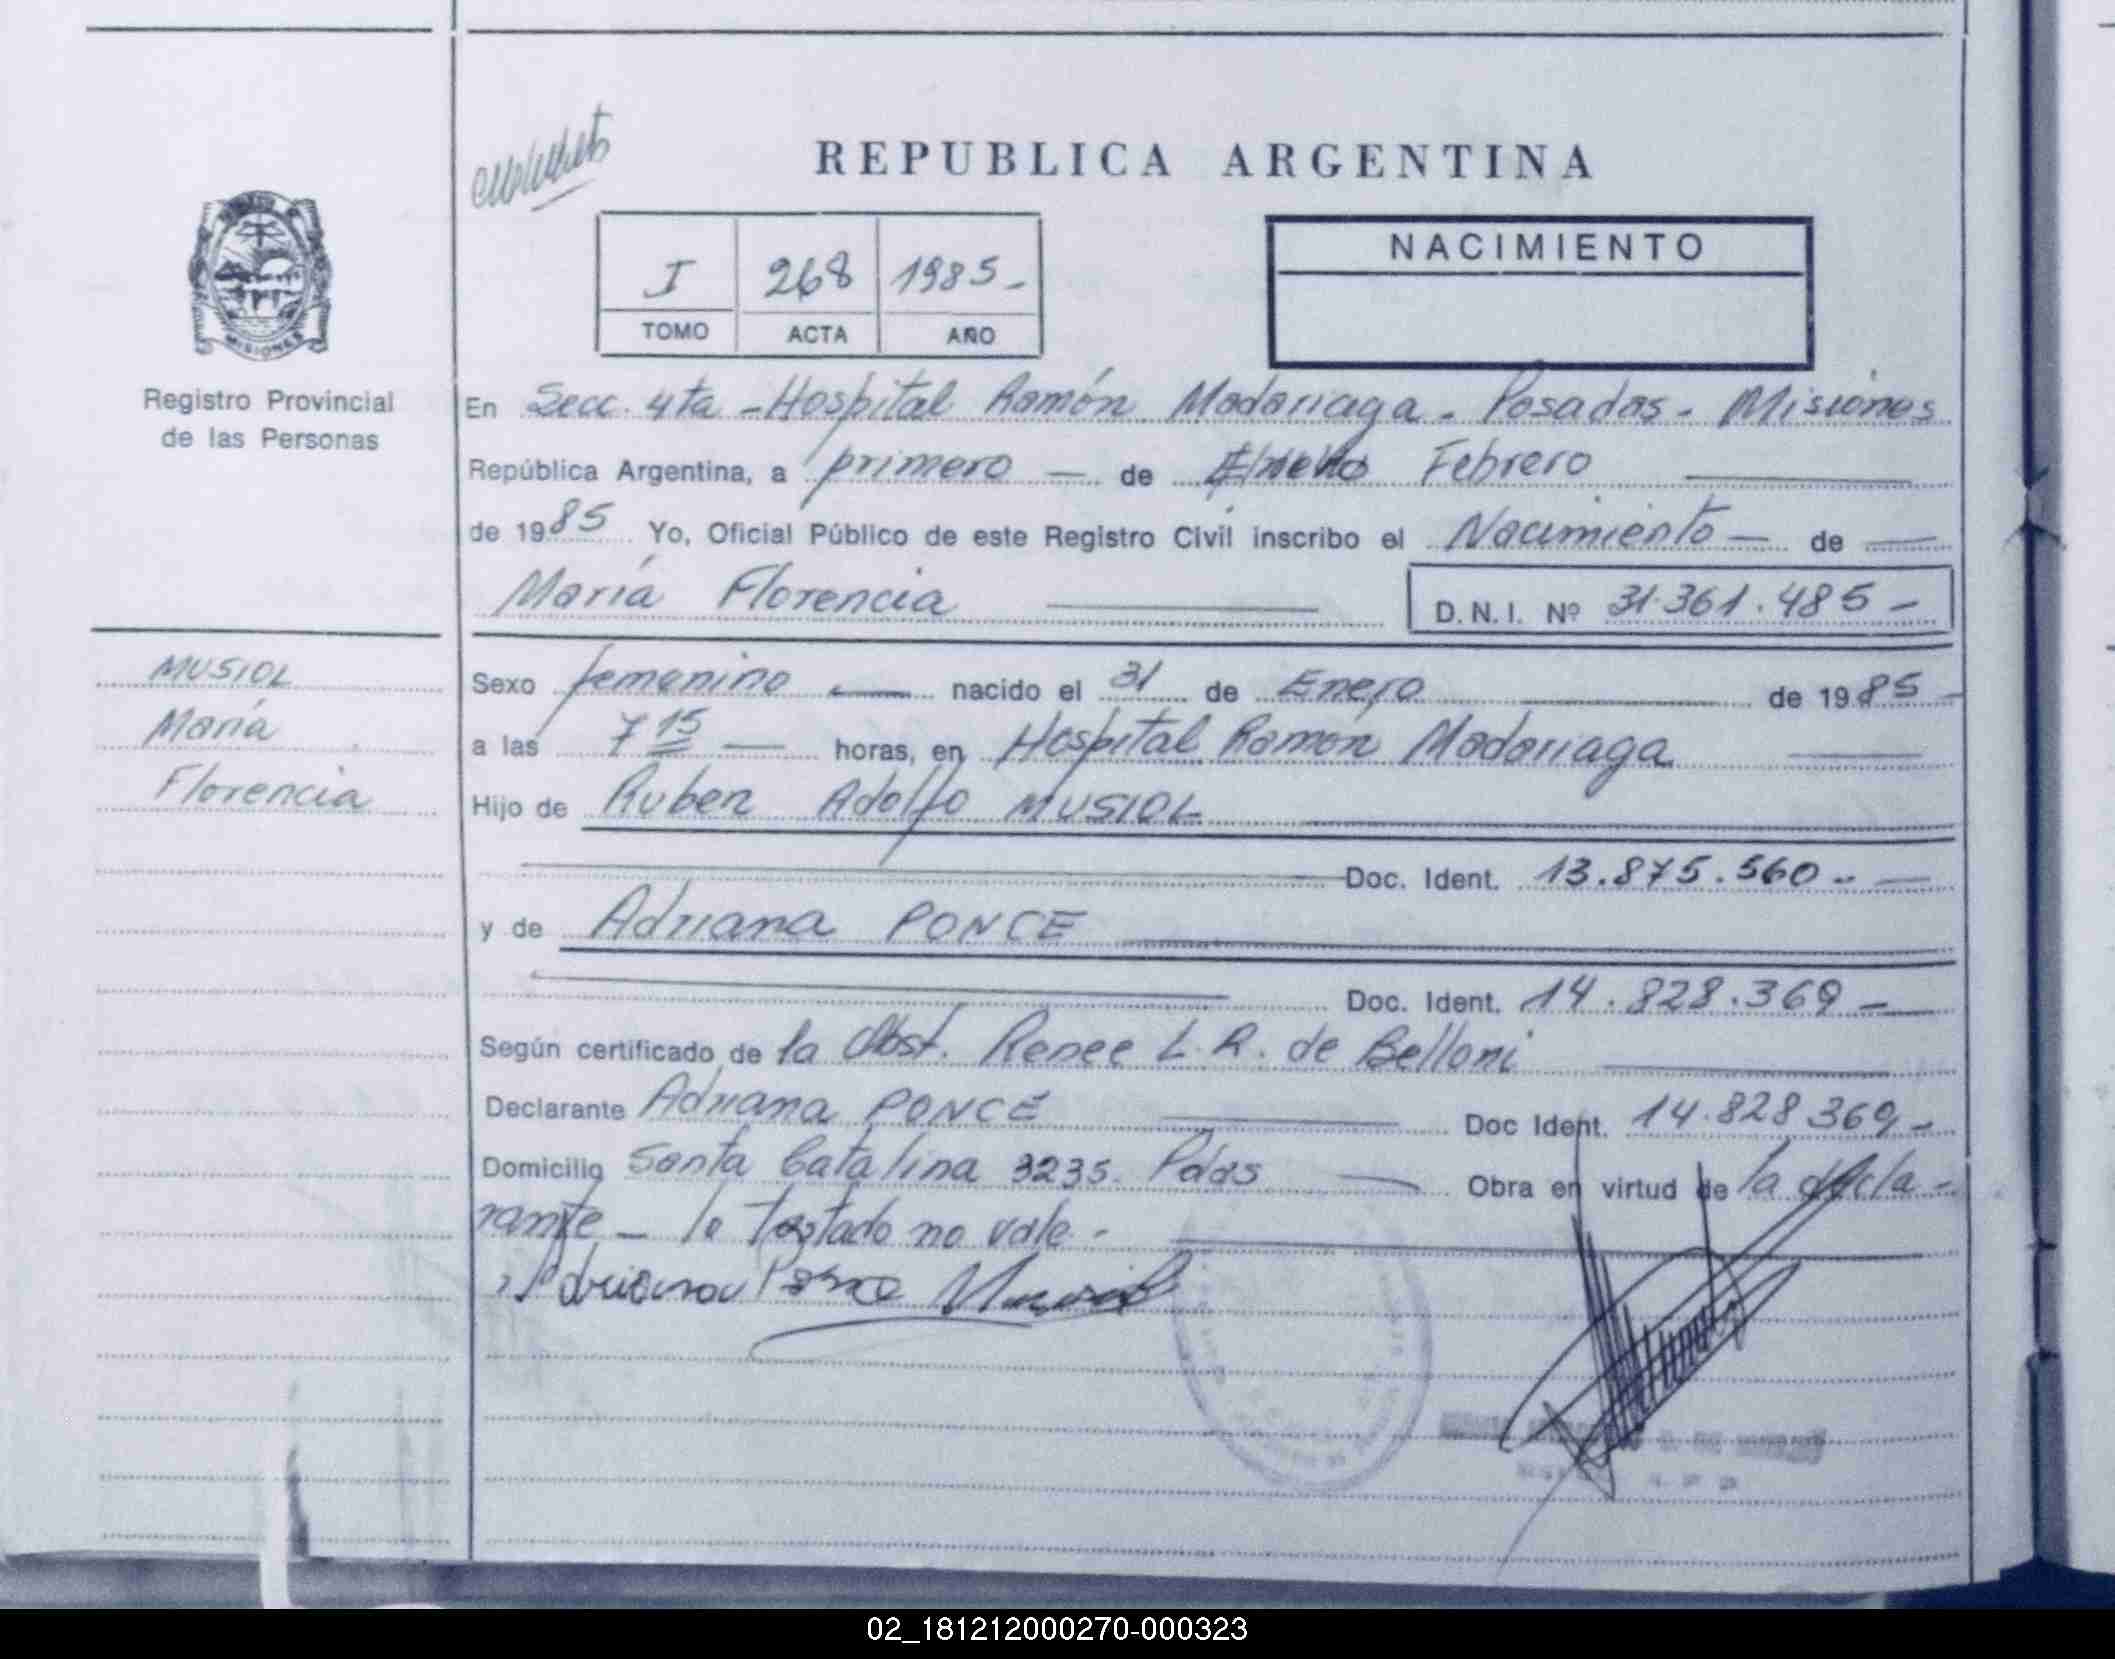 REPUBLICA ARGENTINA
I 268 1985-
TOMO ACTA AÑO
NACIMIENTO
MISIONES
Registro Provincial
de las Personas
En Secc. 4ta - Hospital Ramón Madariaga - Posadas - Misiones
República Argentina, a primero — de Enero Febrero
de 1985 Yo, Oficial Público de este Registro Civil inscribo el Nacimiento — de —
María Florencia D.N.I. Nº 31.361.485 -
MUSIOL
María
Florencia
Sexo femenino — nacido el 31 de Enero de 1985 -
a las 7 15 — horas, en Hospital Ramón Madariaga
Hijo de Ruben Adolfo MUSIOL
Doc. Ident. 13.875.560 - —
y de Adriana PONCE
Doc. Ident. 14.828.369 -
Según certificado de la Obst. Renee L. R. de Belloni
Declarante Adriana PONCE Doc Ident. 14.828 369 -
Domicilio Santa Catalina 3235. Pdas — Obra en virtud de la decla-
rante - lo testado no vale -
Adriana Ponce
02_181212000270-000323